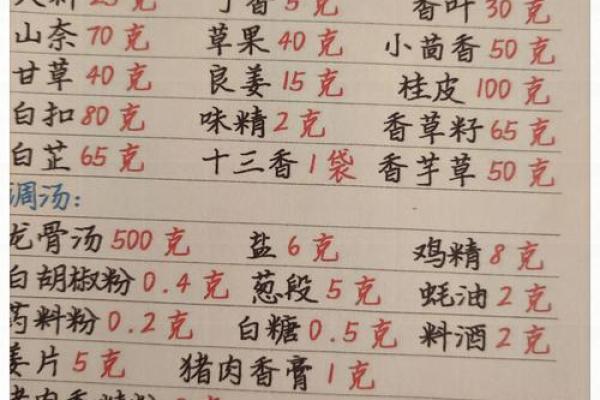 丁香5克 香叶30克
山奈70克 草果40克 小茴香50克
甘草40克 良姜15克 桂皮100克
白扣80克 味精2克 香草籽65克
白芷65克 十三香1袋 香芋草50克
调汤：
龙骨汤500克 盐6克 鸡精8克
白胡椒粉0.4克 葱段5克 蚝油2克
药料粉0.2克 白糖0.5克 料酒2克
姜片5克 猪肉香膏1克